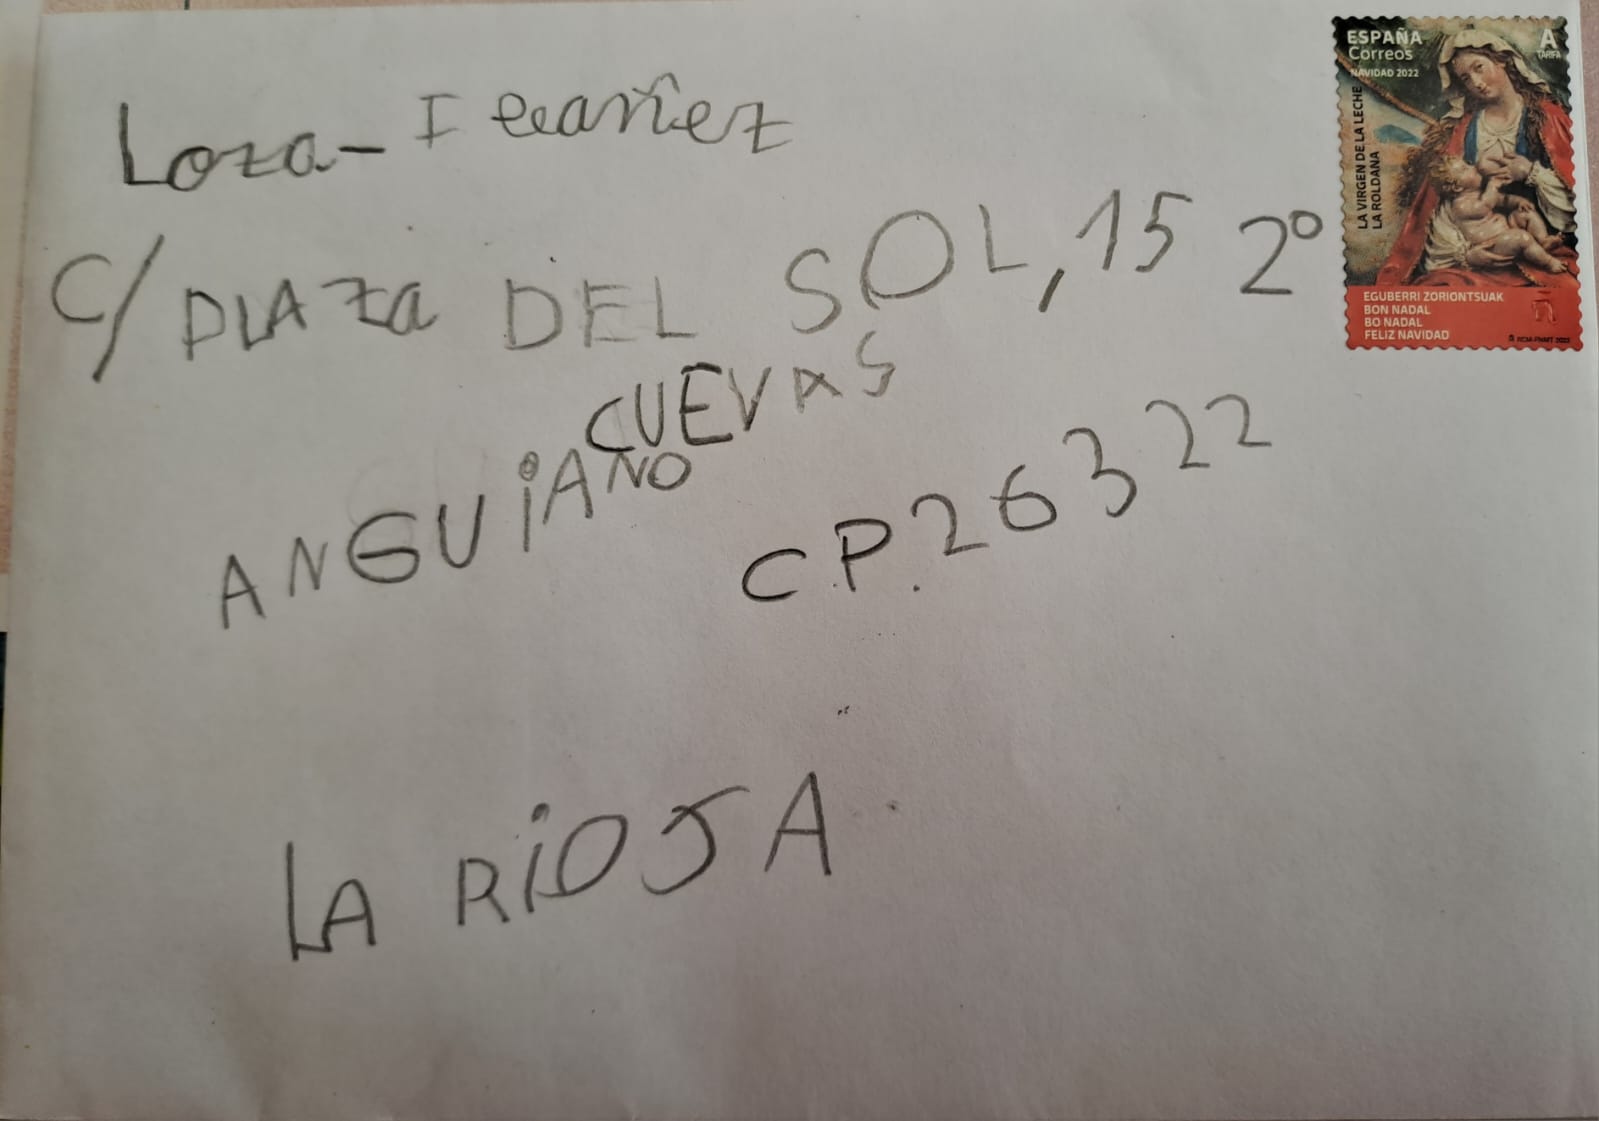 Loza - Ibañez
C/ PLAza DEL SOL, 15 2º
CUEVAS
ANGUiANO
C.P. 26322
LA RiOJA
ESPAÑA
Correos
NAVIDAD 2022
A
TARIFA
LA VIRGEN DE LA LECHE
LA ROLDANA
EGUBERRI ZORIONTSUAK
BON NADAL
BO NADAL
FELIZ NAVIDAD
RCM-FNMT 2022